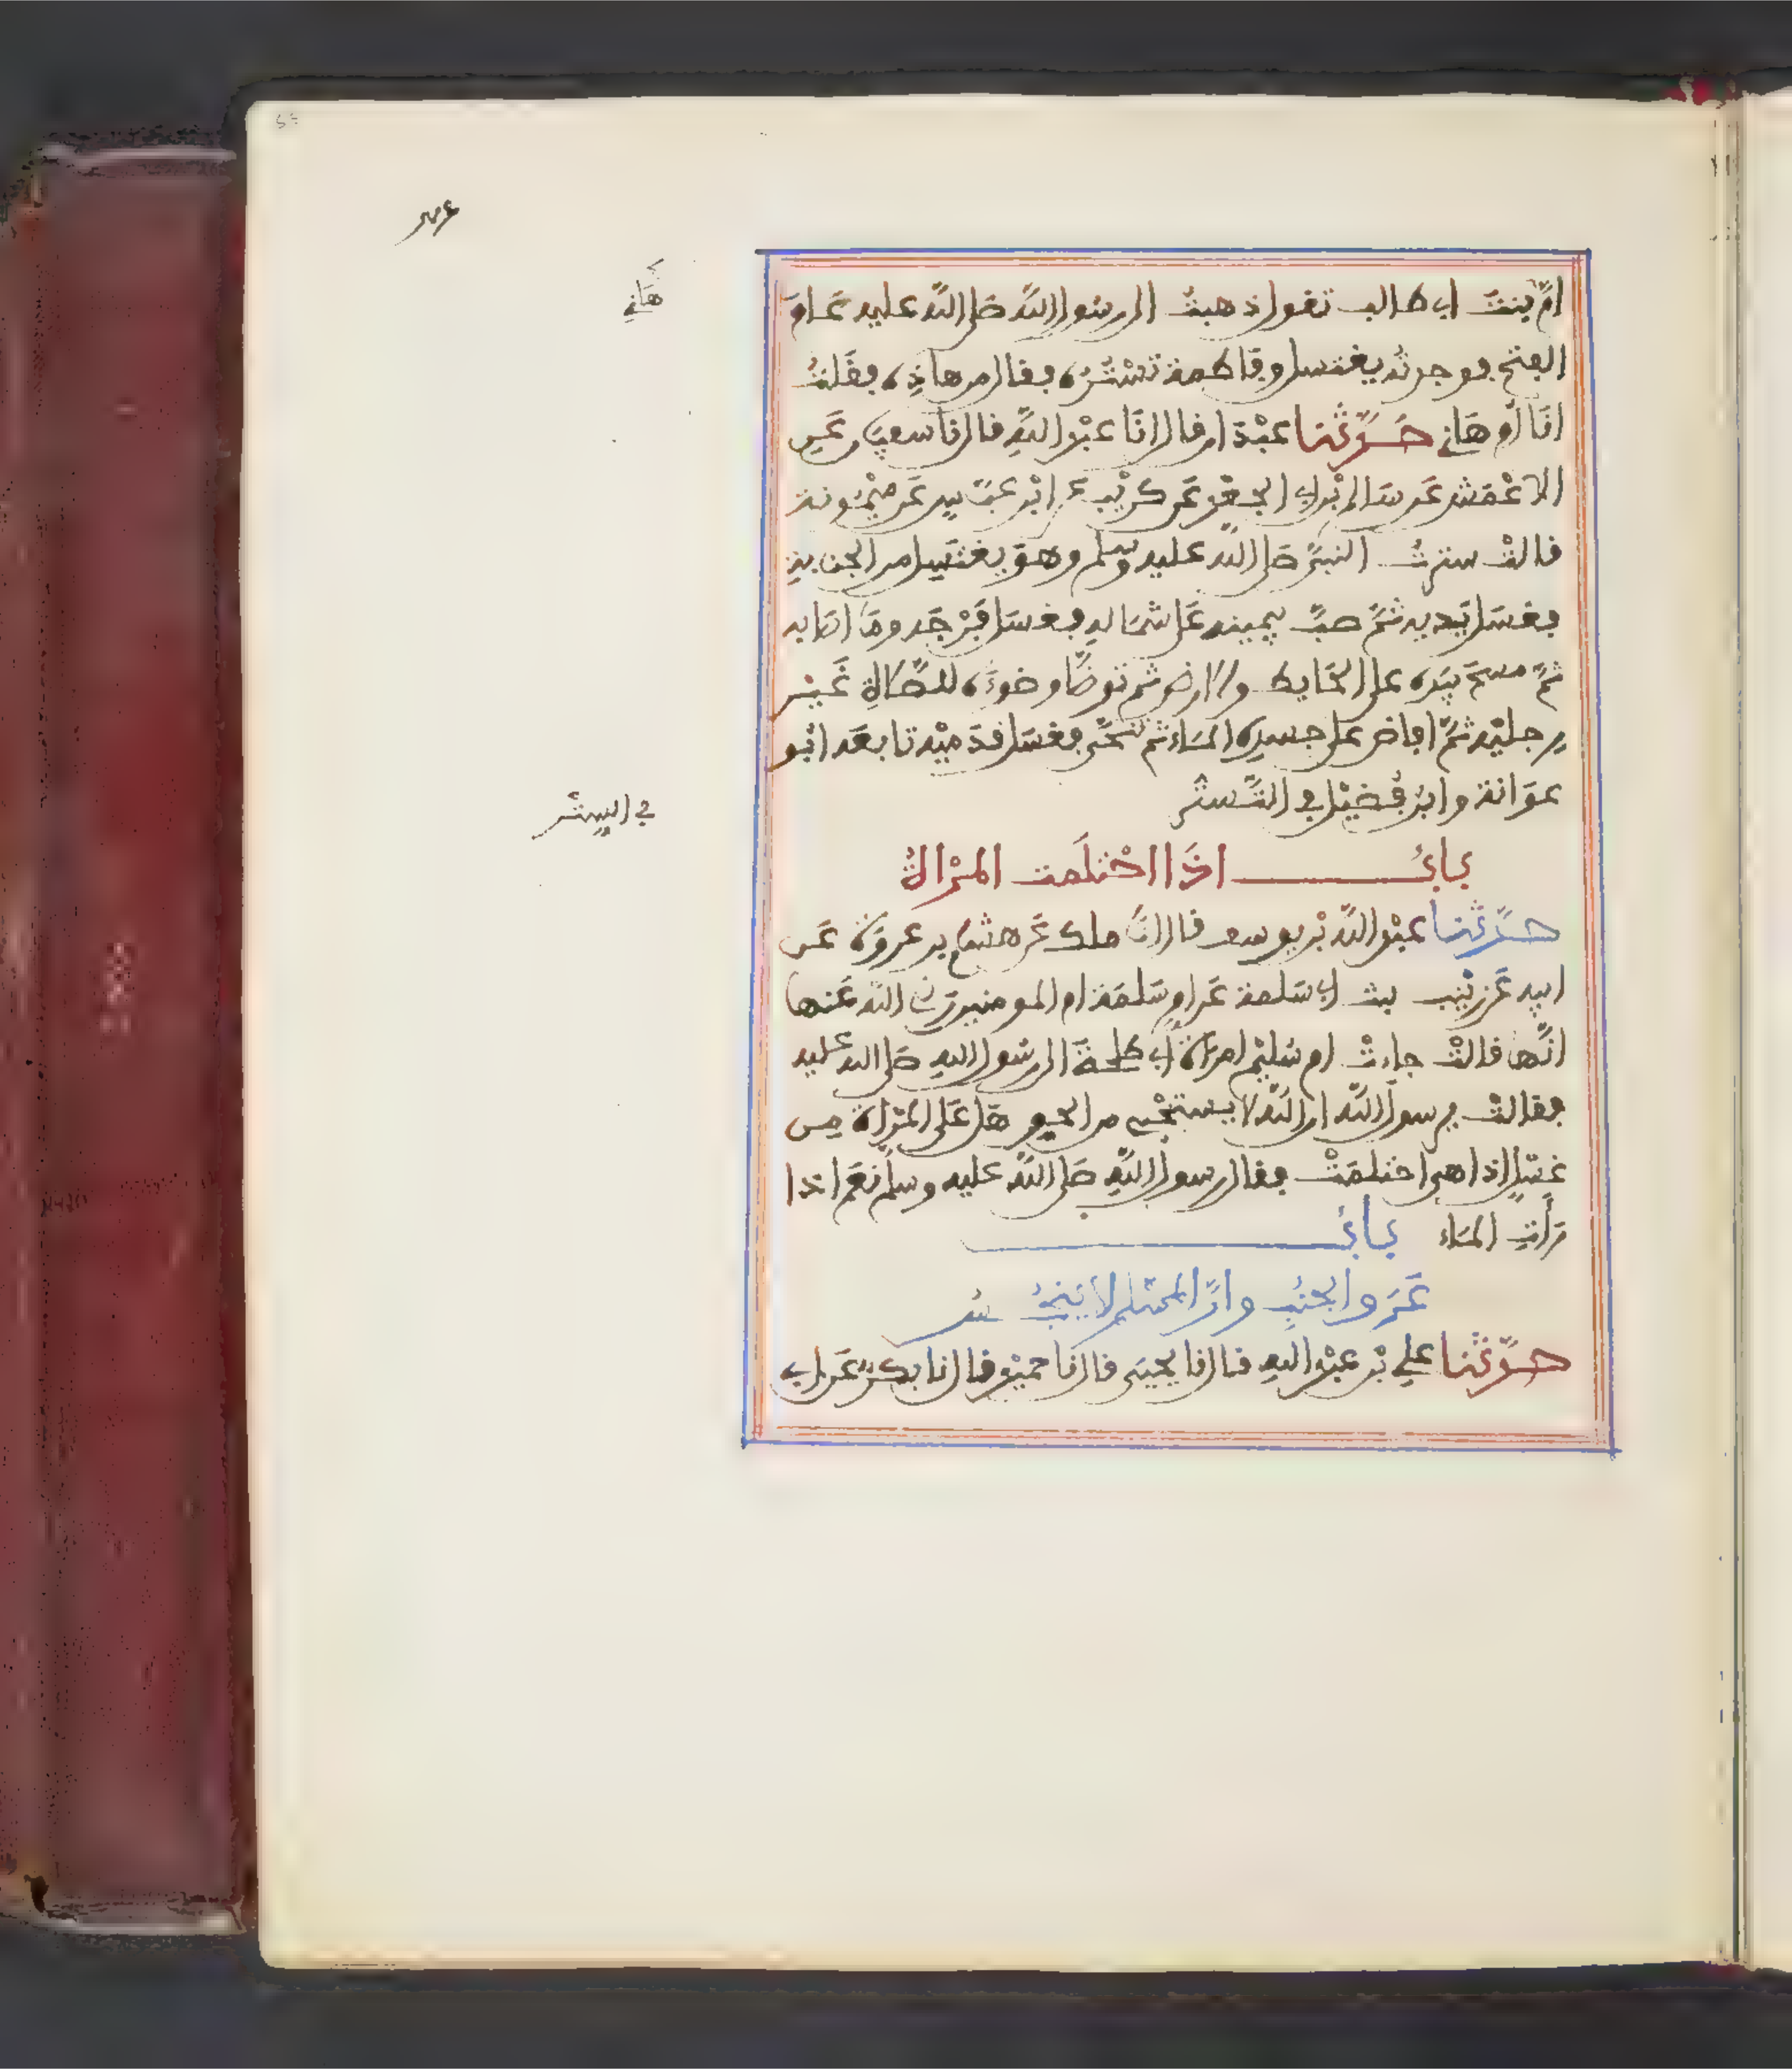 ام بنت ابي طالب تقول ذهبت الى رسول الله صلى الله عليه عام
الفتح فوجدته يغتسل وفاطمة تستره فقال من هاذه فقلت
انا ام هاني حدثنا عبدان قال انا عبد الله قال نا سفين عن
الاعمش عن سالم بن ابي الجعد عن كريب عن ابن عباس عن ميمونة
قالت سترت النبي صلى الله عليه وسلم وهو يغتسل من الجنابة
فغسل يديه ثم صب بيمينه على شماله فغسل فرجه وما اصابه
ثم مسح بيده على الحايط والارض ثم توضا وضوءه للصلاة غير
رجليه ثم افاض على جسده الماء ثم تنحى فغسل قدميه تابعه ابو
عوانة وابن فضيل في التستر
باب اذا احتلمت المراة
حدثنا عبد الله بن يوسف قال انا ملك عن هشام بن عروة عن
ابيه عن زينب بنت ابي سلمة عن ام سلمة ام المومنين رضي الله عنها
انها قالت جاءت ام سليم امراة ابي طلحة الى رسول الله صلى الله عليه
فقالت يرسول الله ان الله لا يستحيي من الحق هل على المراة من
غسل اذا هي احتلمت فقال رسول الله صلى الله عليه وسلم نعم اذا
رأت الماء باب
عرق الجنب وان المسلم لا ينجس
حدثنا علي بن عبد الله قال نا يحيى قال نا حميد قال نا بكر عن ابي
هاني
في الستر